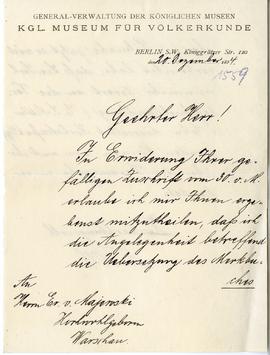 GENERAL-VERWALTUNG DER KÖNIGLICHEN MUSEEN
KGL MUSEUM FÜR VÖLKERKUNDE
BERLIN S.W., Königgrätzer Str. 120
den 20. Dezember 1894.
1559
Geehrter Herr!
In Erwiderung Ihrer ge-
fälligen Zuschrift vom 30. v. M.
erlaube ich mir Ihnen er-
gebenst mitzutheilen, daß ich
die Angelegenheit betreffend
die Uebersetzung des Merkbu-
ches
An
Herrn Er. v. Majewski
Hochwohlgeboren
Warschau.